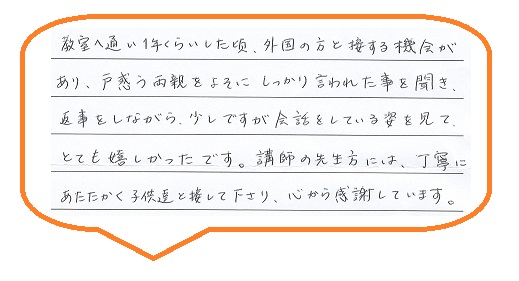 教室へ通い1年くらいした頃、外国の方と接する機会が
あり、戸惑う両親をよそに しっかり言われた事を聞き、
返事をしながら、少しですが会話をしている姿を見て、
とても嬉しかったです。講師の先生方には、丁寧に
あたたかく子供達と接して下さり、心から感謝しています。